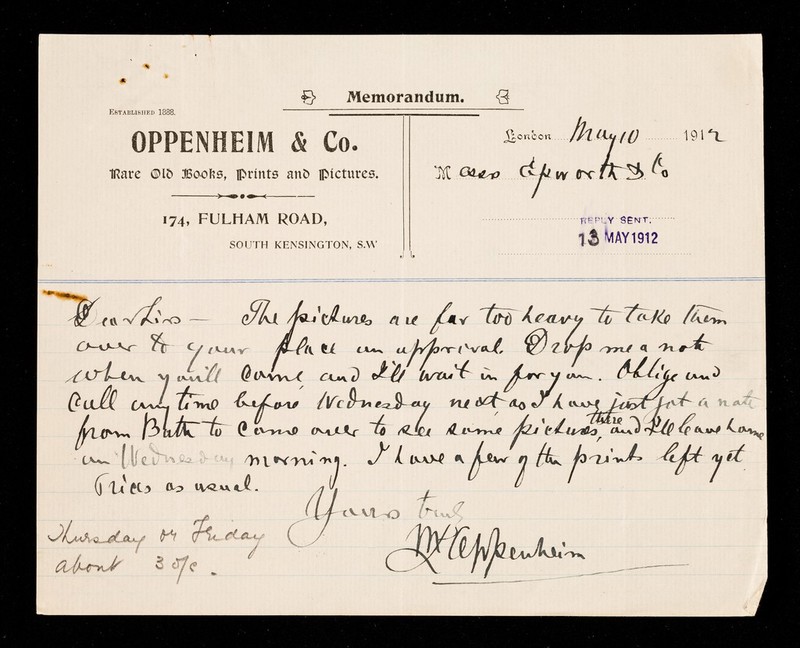 Memorandum.
ESTABLISHED 1888.
OPPENHEIM & Co.
Rare Old Books, Prints and Pictures.
174, FULHAM ROAD,
SOUTH KENSINGTON, S.W
London May 10 1912
Mess Epworth & Co
REPLY SENT.
13 MAY 1912
Dear Sirs — The pictures are far too heavy to take them
over to your place on approval. Drop me a note
when you'll come and I'll wait in for you. Oblige and
call anytime before Wednesday next as I have just got a note
from Bath to come over to see some pictures there, and I'll leave home
on Wednesday morning. I have a few of the prints left yet.
Prices as usual.
Yours truly
Oppenheim
Thursday or Friday
about 3 o/c.